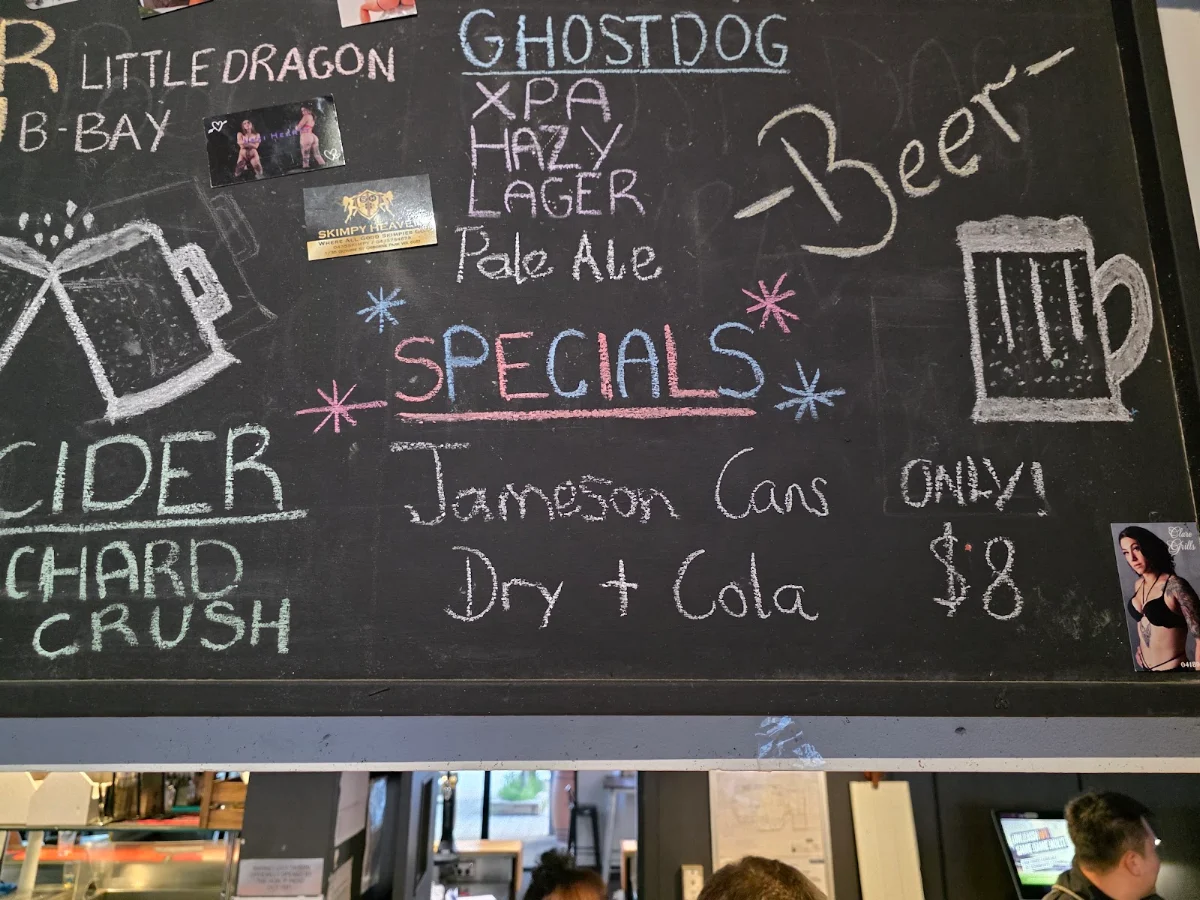 R LITTLE DRAGON
B-BAY
GHOSTDOG
XPA
HAZY
LAGER
Pale Ale
-Beer-
SKIMPY HEAVEN
WHERE ALL GOOD SKIMPIES
SPECIALS
Jameson Cans ONLY!
Dry + Cola $8
CIDER
CHARD
CRUSH
Clare
Grills
0418